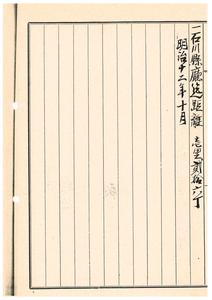 一石川縣廳迄距離 壱里貳拾六丁
明治十二年十月